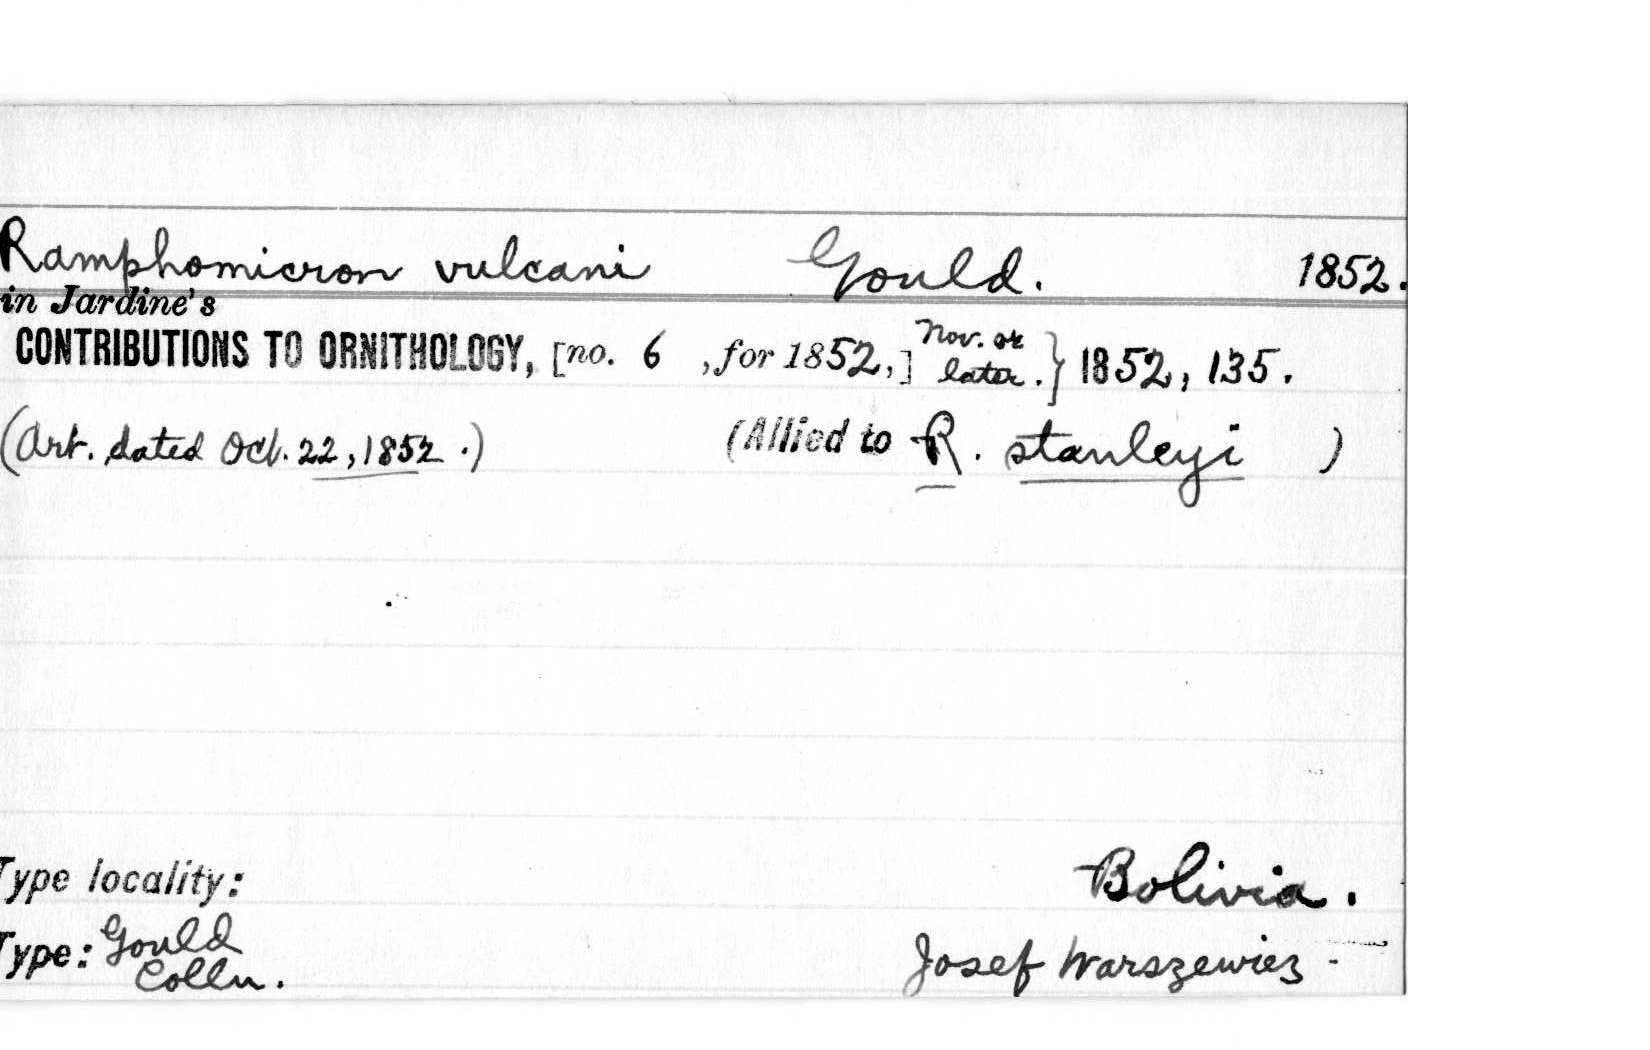 Ramphomicron vulcani Gould. 1852.
in Jardine's
CONTRIBUTIONS TO ORNITHOLOGY, [no. 6 , for 1852,] Nov. or later. } 1852, 135.
(Art. dated Oct. 22, 1852.) (Allied to R. stanleyi )
Type locality: Bolivia.
Type: Gould Colln. Josef Warszewiez -